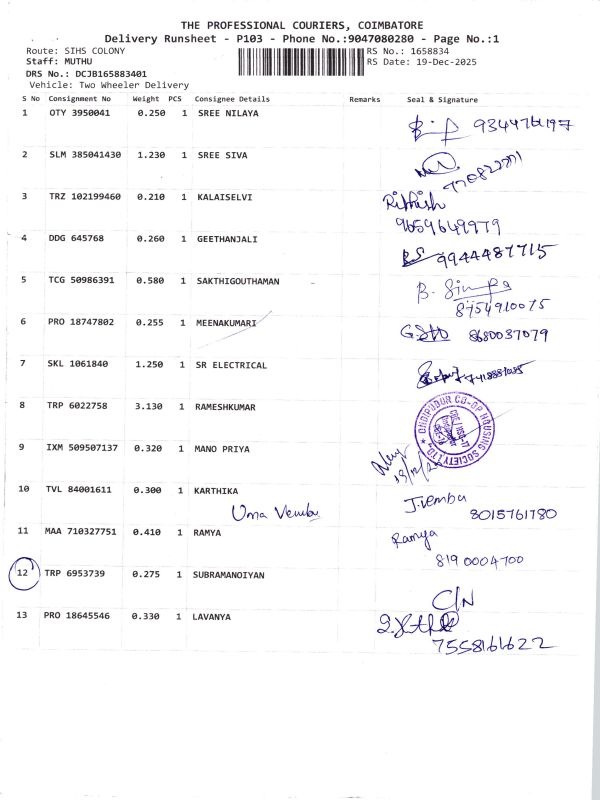 THE PROFESSIONAL COURIERS, COIMBATORE
Delivery Runsheet - P103 - Phone No.:9047080280 - Page No.:1
Route: SIHS COLONY
RS No.: 1658834
Staff: MUTHU
RS Date: 19-Dec-2025
DRS No.: DCJB165883401
Vehicle: Two Wheeler Delivery
S No Consignment No Weight PCS Consignee Details Remarks Seal & Signature
1 OTY 3950041 0.250 1 SREE NILAYA
2 SLM 385041430 1.230 1 SREE SIVA
3 TRZ 102199460 0.210 1 KALAISELVI Rithish
9659649979
4 DDG 645768 0.260 1 GEETHANJALI 9944487715
5 TCG 50986391 0.580 1 SAKTHIGOUTHAMAN
8754910075
6 PRO 18747802 0.255 1 MEENAKUMARI 8680037079
7 SKL 1061840 1.250 1 SR ELECTRICAL
8 TRP 6022758 3.130 1 RAMESHKUMAR
CO-OP HOUSING SOCIETY LTD.
9 IXM 509507137 0.320 1 MANO PRIYA
10 TVL 84001611 0.300 1 KARTHIKA J.Vemba
Uma Vemba 8015761780
11 MAA 710327751 0.410 1 RAMYA Ramya
8190004700
12 TRP 6953739 0.275 1 SUBRAMANOIYAN
C/N
13 PRO 18645546 0.330 1 LAVANYA
7558161622